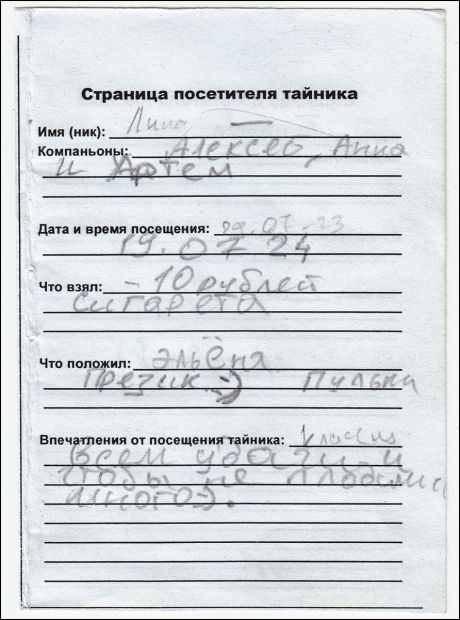 Страница посетителя тайника
Имя (ник): Лина —
Компаньоны: Алексей, Анна
и Артем
Дата и время посещения: 29.07-23
19.07 24
Что взял: - 10 рублей
сигарета
Что положил: Эльёня
Презик :) Пулька
Впечатления от посещения тайника:
Всем удачи и
чтобы не плодами
много).